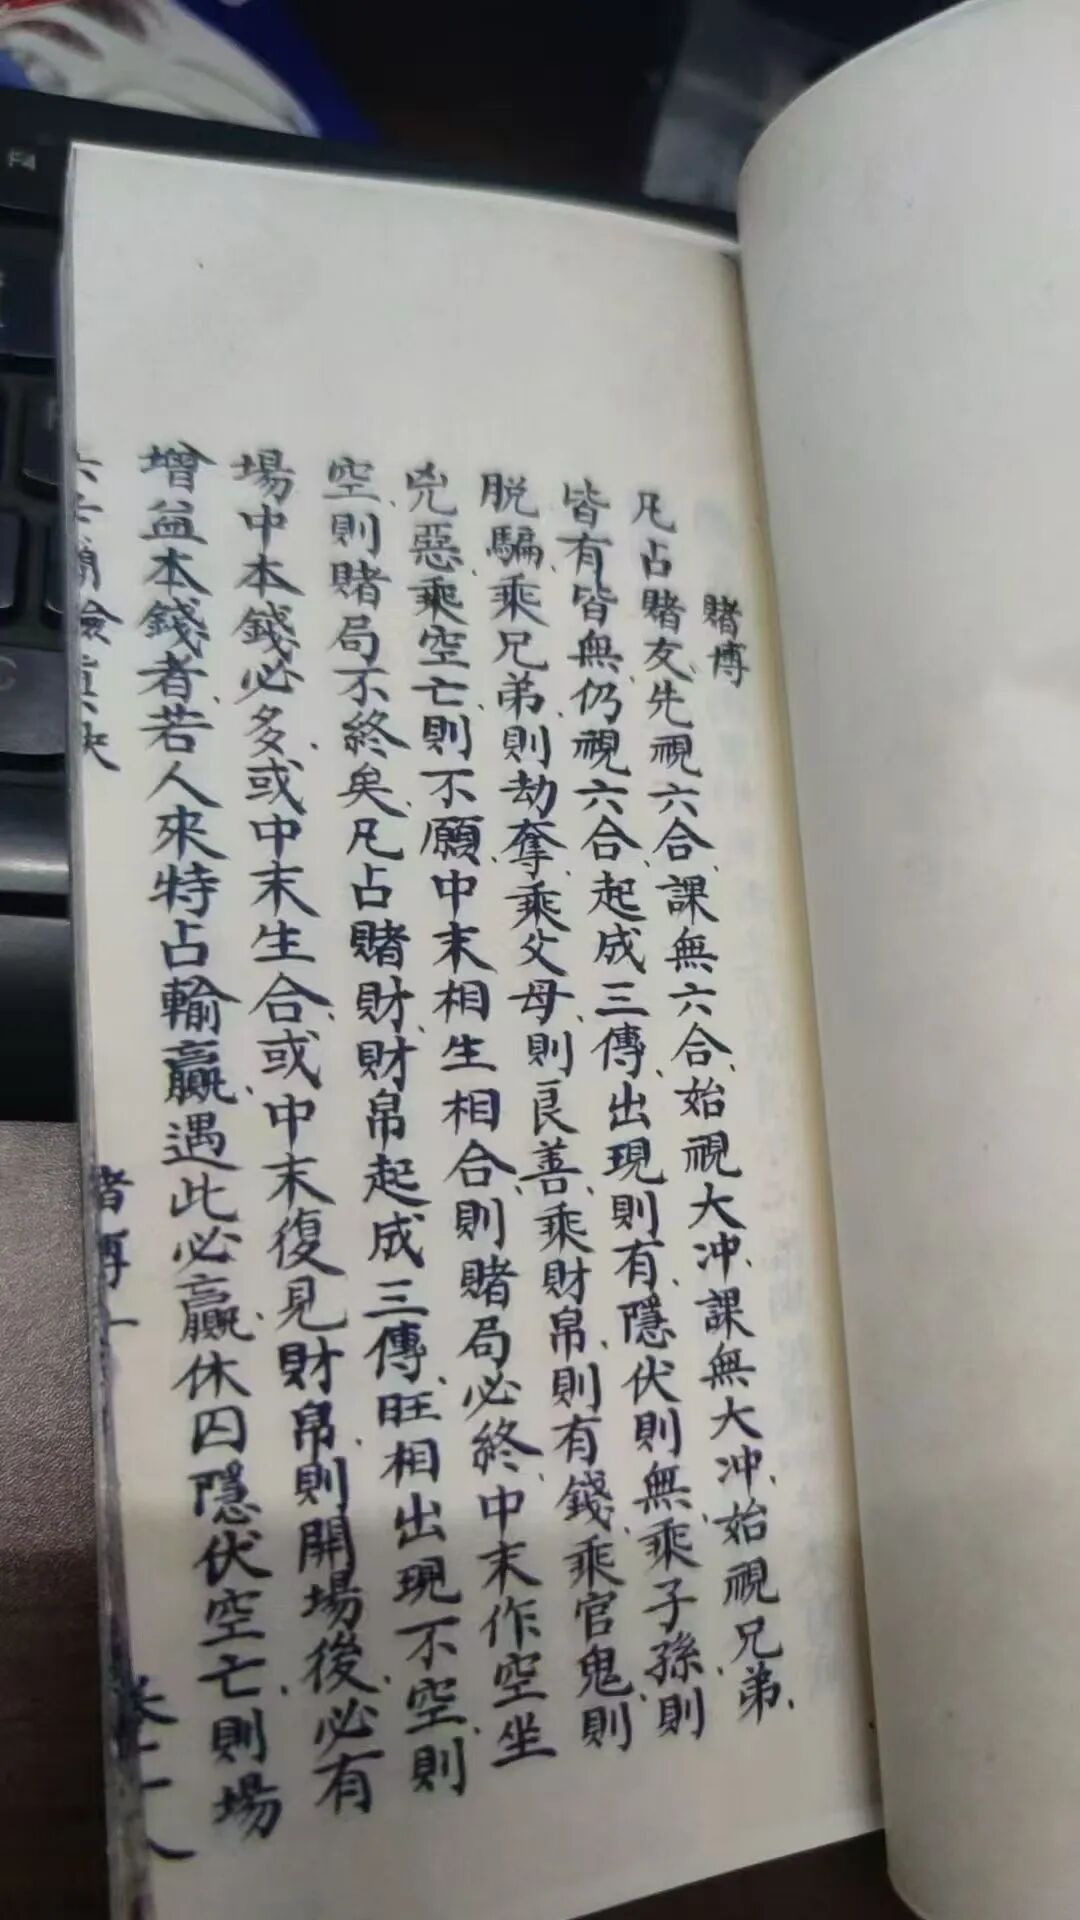 賭博
凡占賭友先視六合課無六合始視大冲課無大冲始視兄弟
皆有皆無仍視六合起成三傳出現則有隱伏則無乘子孫則
脱騙乘兄弟則劫奪乘父母則良善乘財帛則有錢乘官鬼則
兇惡乘空亡則不願中末相生相合則賭局必終中末作空坐
空則賭局不終矣凡占賭財財帛起成三傳旺相出現不空則
場中本錢必多或中末生合或中末復見財帛則開場後必有
增益本錢者若人來特占輸贏遇此必贏休囚隱伏空亡則場
賭博一
F4